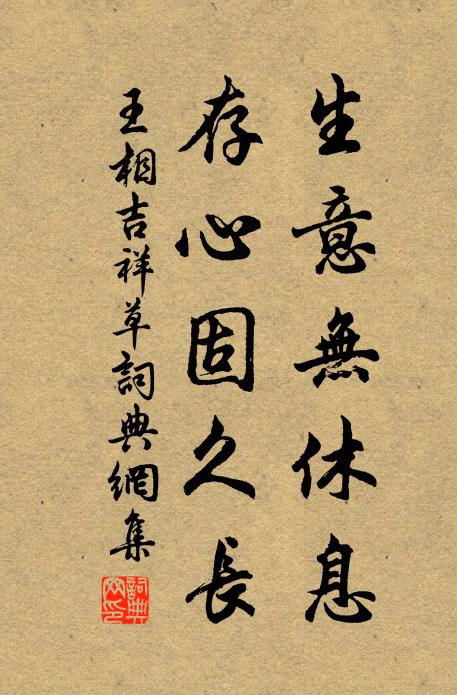 生意無休息
存心固久長
王相吉祥草詞典網集
詞典網印